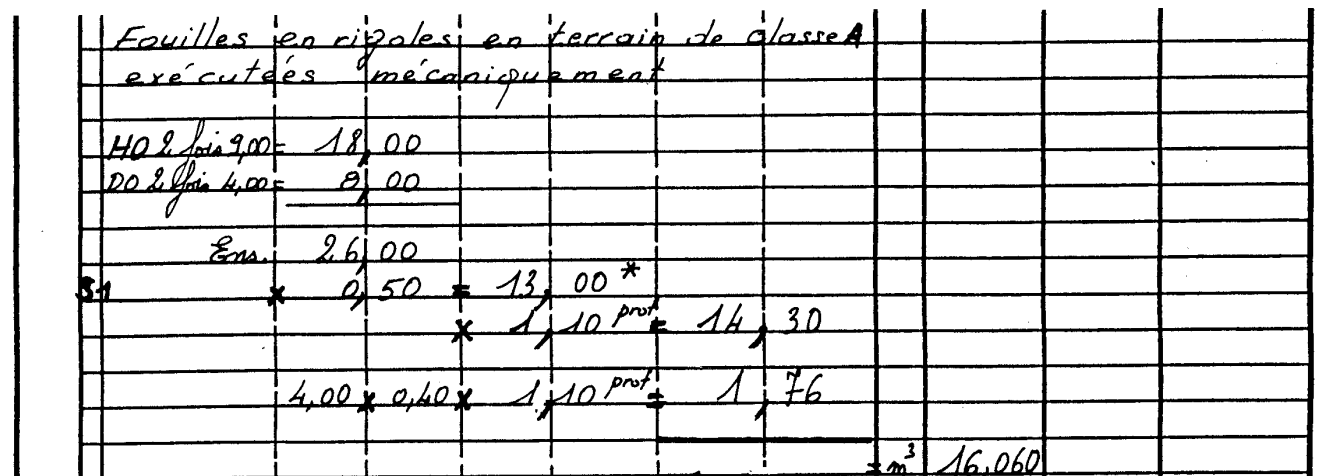 Fouilles en rigoles en terrain de classe A
exécutées mécaniquement
HO 2 fois 9,00 = 18,00
DO 2 fois 4,00 = 8,00
Ens. 26,00
S1 x 0,50 = 13,00 *
x 1,10 prof = 14,30
4,00 x 0,40 x 1,10 prof = 1,76
= m³ 16,060